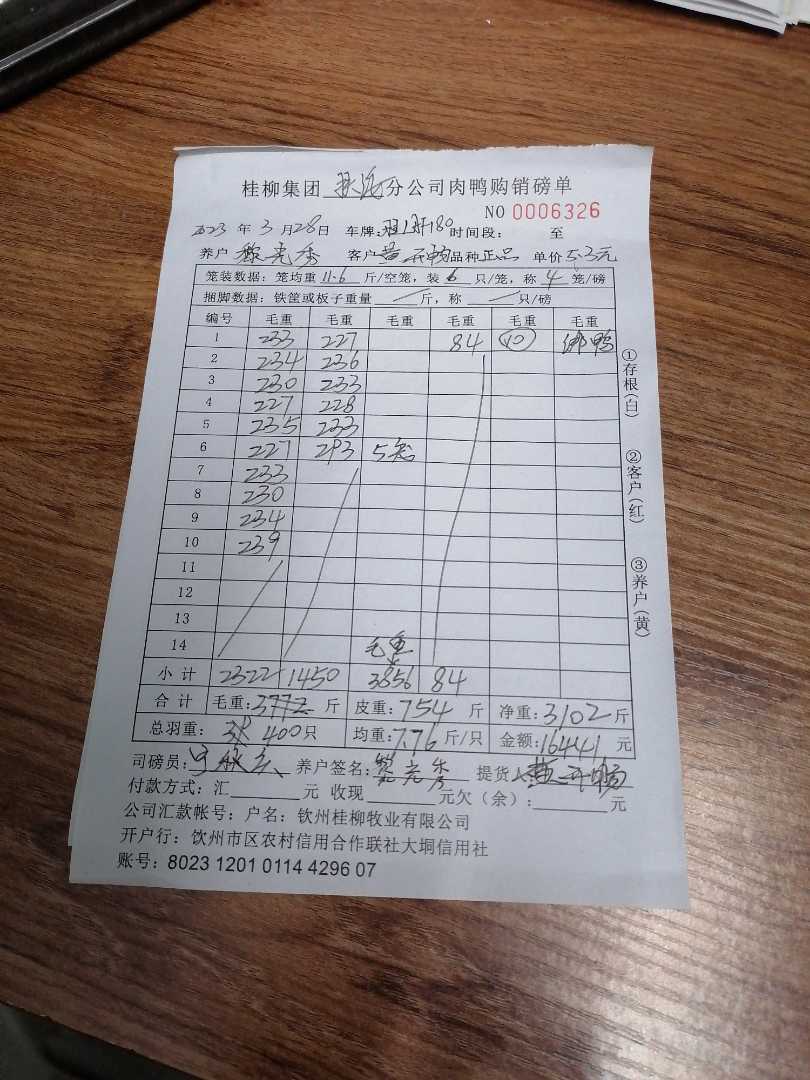 桂柳集团 分公司肉鸭购销磅单
NO 0006326
2023 年 3 月 28 日 车牌: 时间段: 至
养户 客户 黄 品种 正品 单价 5.3元
笼装数据: 笼均重 11.6 斤/空笼, 装 6 只/笼, 称 4 笼/磅
捆脚数据: 铁筐或板子重量 斤, 称 只/磅
编号 毛重 毛重 毛重 毛重 毛重 毛重
1 233 227 84 (10) 绑鸭
2 234 236
3 230 233
4 227 228
5 235 233
6 227 293 5笼
7 233
8 230
9 234
10 239
11
12
13
14 毛重
小计 2322 1450 3856 84
合计 毛重: 3772 斤 皮重: 754 斤 净重: 3102 斤
总羽重: 400 只 均重: 7.76 斤/只 金额: 16441 元
司磅员: 养户签名: 提货人
付款方式: 汇 元 收现 元欠(余): 元
公司汇款帐号: 户名: 钦州桂柳牧业有限公司
开户行: 钦州市区农村信用合作联社大垌信用社
账号: 8023 1201 0114 4296 07
①存根(白)
②客户(红)
③养户(黄)